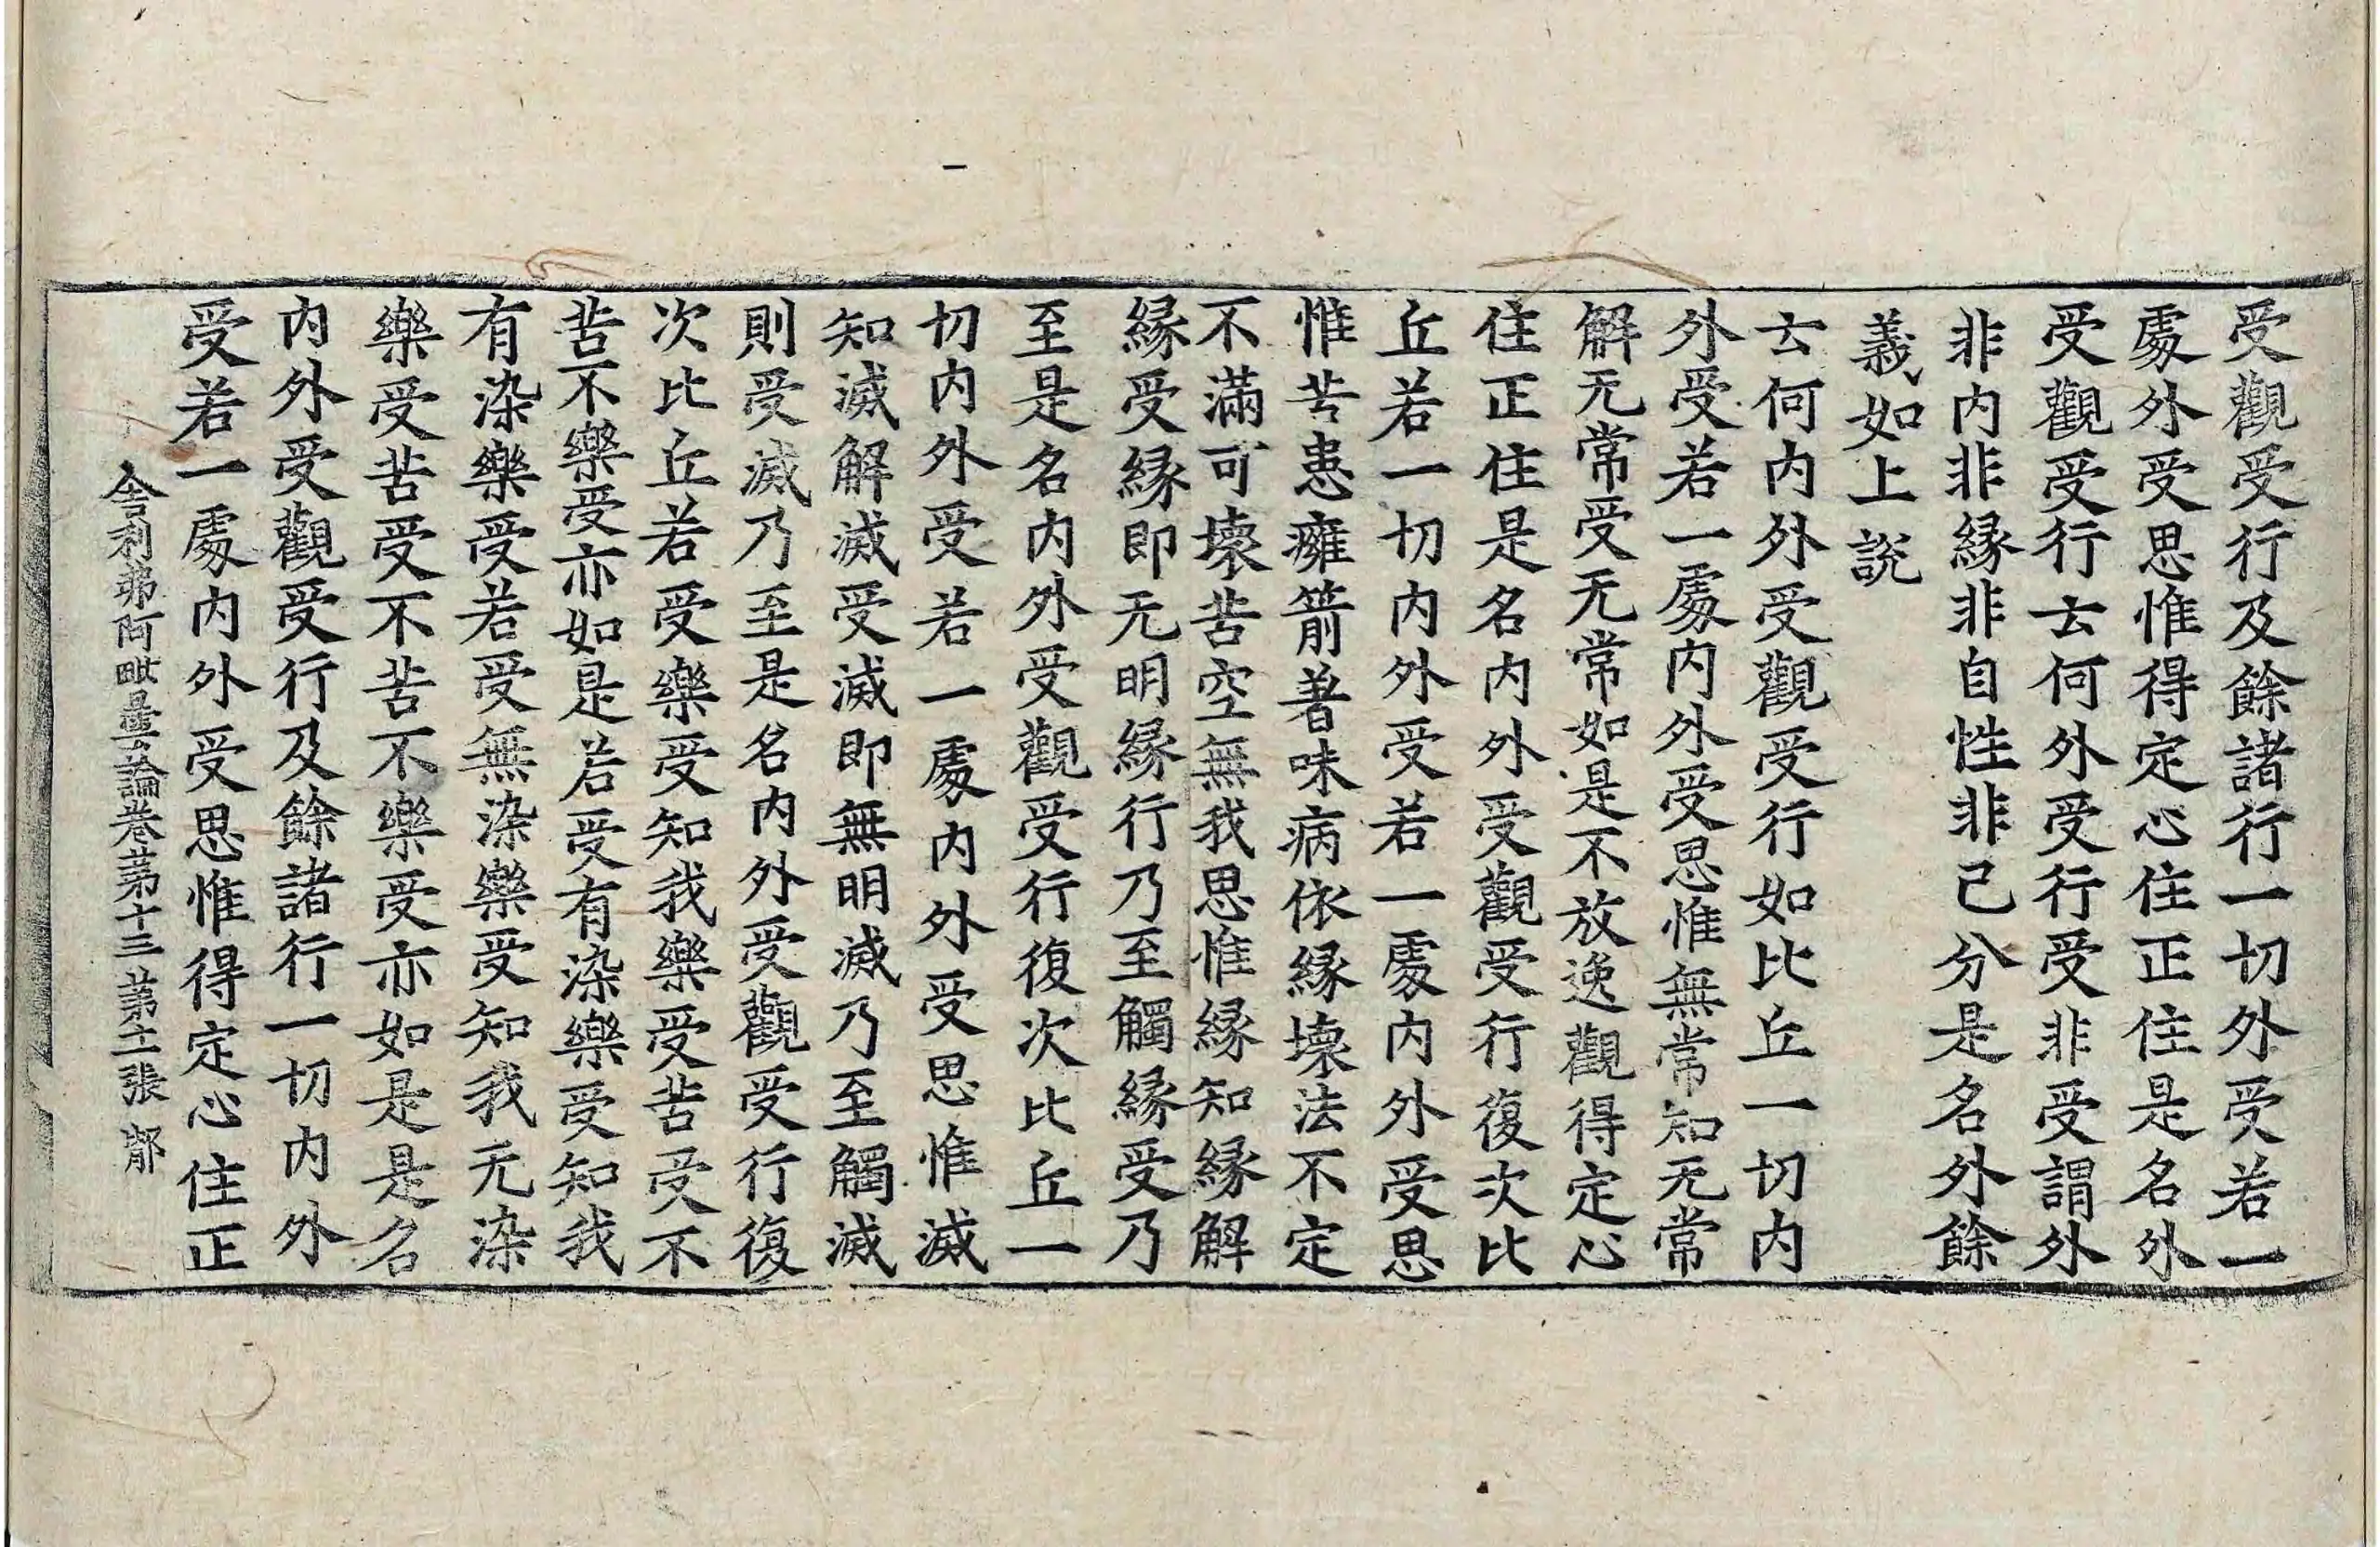 受觀受行及餘諸行一切外受若一
處外受思惟得定心住正住是名外
受觀受行云何外受行受非受謂外
非內非緣非自性非己分是名外餘
義如上說
云何內外受觀受行如比丘一切內
外受若一處內外受思惟無常知无常
解无常受无常如是不放逸觀得定心
住正住是名內外受觀受行復次比
丘若一切內外受若一處內外受思
惟苦患癰箭著味病依緣壞法不定
不滿可壞苦空無我思惟緣知緣解
緣受緣即无明緣行乃至觸緣受乃
至是名內外受觀受行復次比丘一
切內外受若一處內外受思惟滅
知滅解滅受滅即無明滅乃至觸滅
則受滅乃至是名內外受觀受行復
次比丘若受樂受知我樂受苦受不
苦不樂受亦如是若受有染樂受知我
有染樂受若受無染樂受知我无染
樂受苦受不苦不樂受亦如是是名
內外受觀受行及餘諸行一切內外
受若一處內外受思惟得定心住正
舍利弗阿毗曇論卷第十三 第十二張